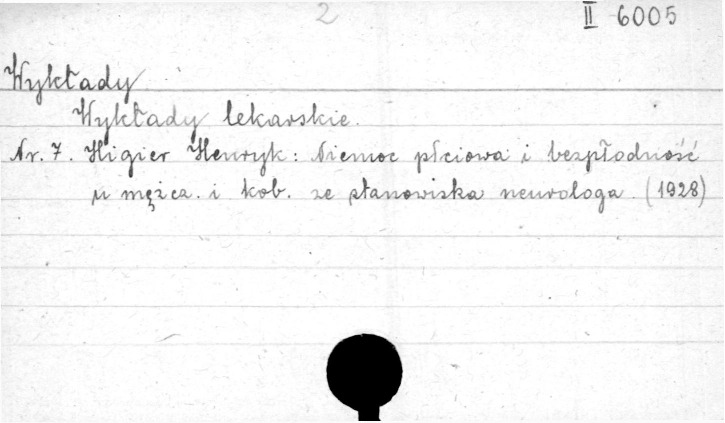 2
II 6005
Wykłady
Wykłady lekarskie.
Nr. 7. Higier Henryk: Niemoc płciowa i bezpłodność
u mężcz. i kob. ze stanowiska neurologa. (1928)